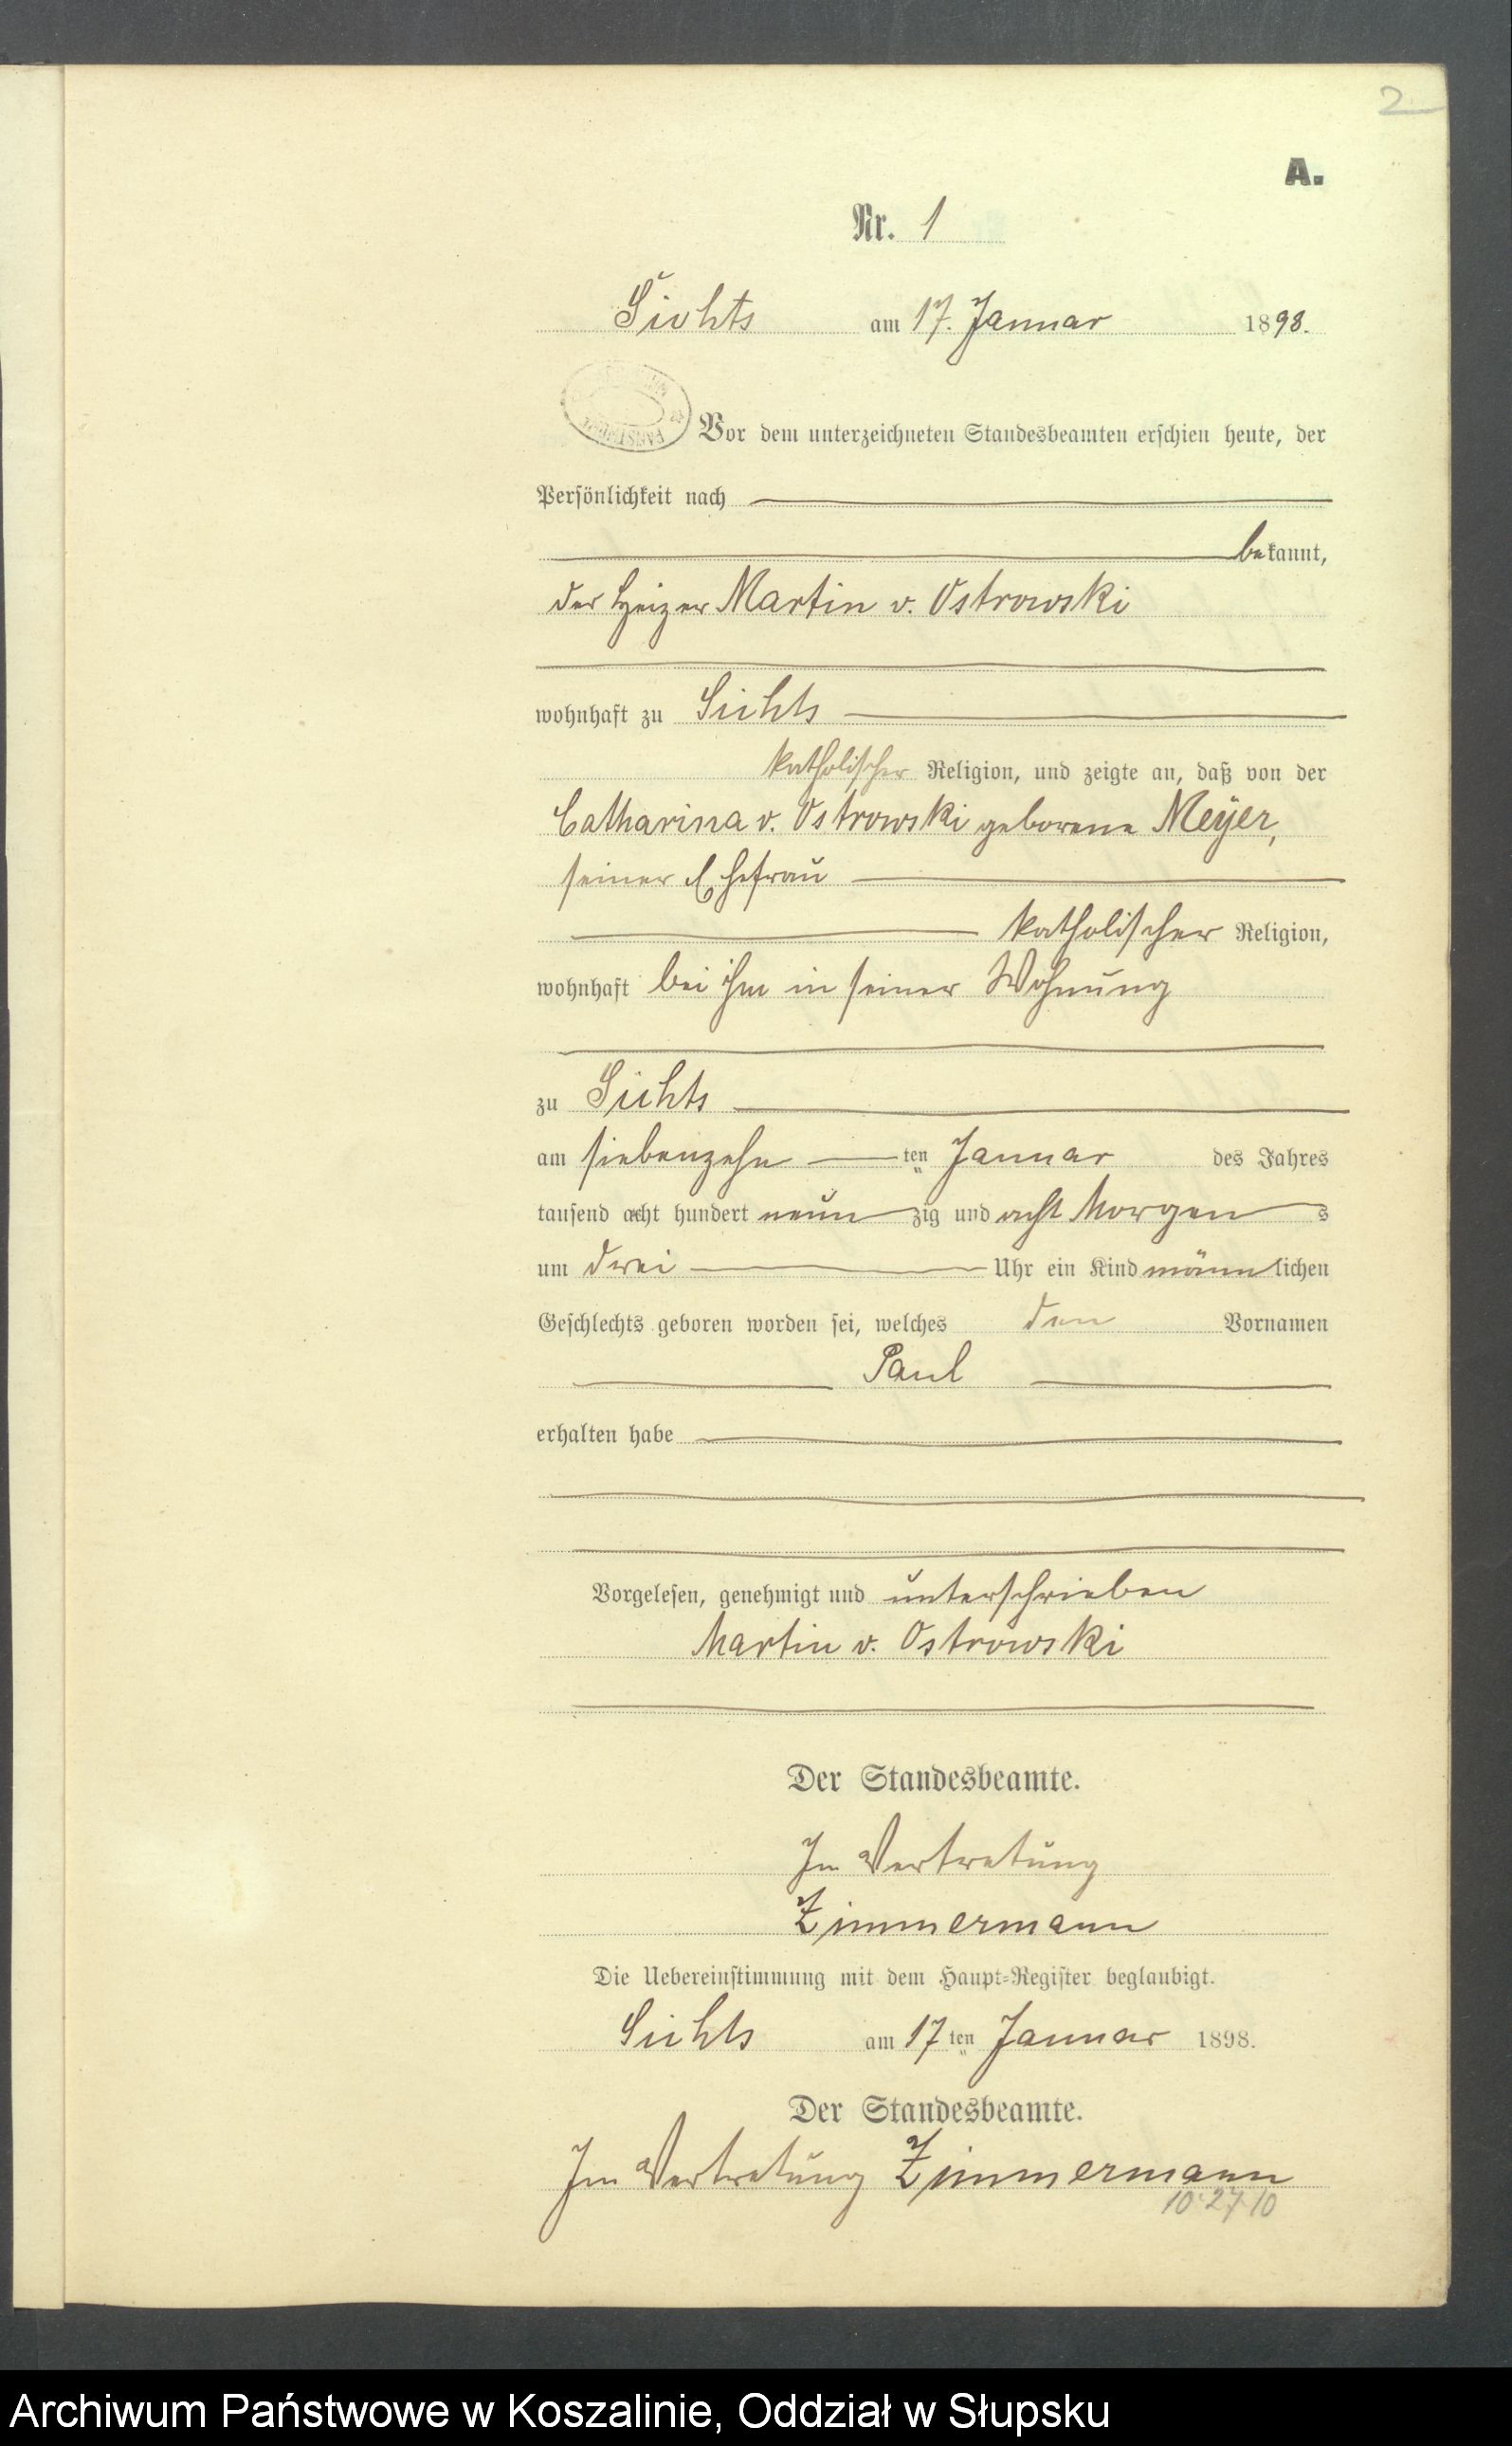 2
A.
Nr. 1
Sichts am 17. Januar 1898.
Vor dem unterzeichneten Standesbeamten erschien heute, der
Persönlichkeit nach
bekannt,
der Heizer Martin v. Ostrowski
wohnhaft zu Sichts
katholischer Religion, und zeigte an, daß von der
Catharina v. Ostrowski geborene Meyer,
seiner Ehefrau
katholischer Religion,
wohnhaft bei ihm in seiner Wohnung
zu Sichts
am siebenzehn ten Januar des Jahres
tausend acht hundert neunzig und acht Morgens
um drei Uhr ein Kind männlichen
Geschlechts geboren worden sei, welches den Vornamen
Paul
erhalten habe
Vorgelesen, genehmigt und unterschrieben
Martin v. Ostrowski
Der Standesbeamte.
In Vertretung
Zimmermann
Die Uebereinstimmung mit dem Haupt-Register beglaubigt.
Sichts am 17ten Januar 1898.
Der Standesbeamte.
In Vertretung Zimmermann
10·27·10
Archiwum Państwowe w Koszalinie, Oddział w Słupsku